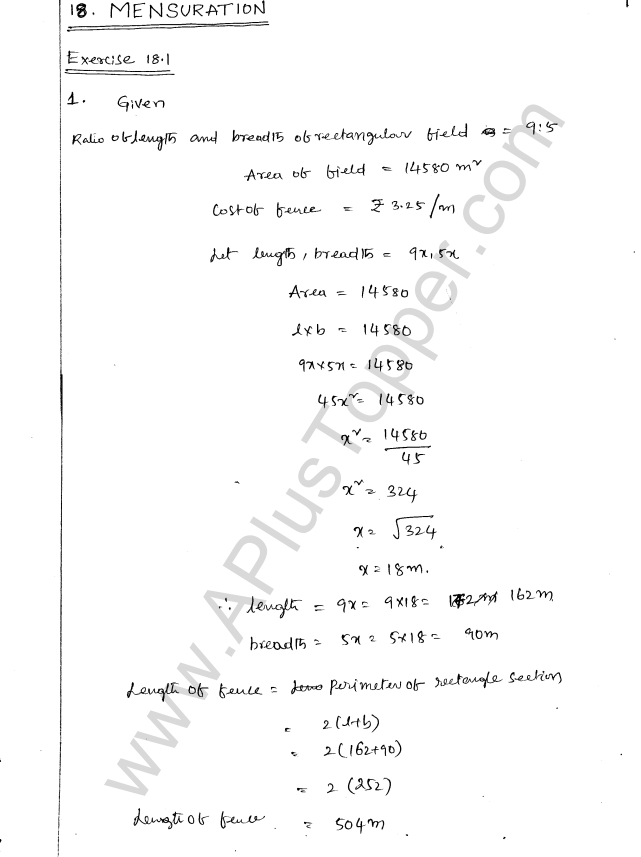 18. MENSURATION
Exercise 18.1
1. Given
Ratio of length and breadth of rectangular field = 9:5
Area of field = 14580 m²
Cost of fence = ₹ 3.25/m
Let length, breadth = 9x, 5x
Area = 14580
l×b = 14580
9x×5x = 14580
45x² = 14580
x² = 14580/45
x² = 324
x = √324
x = 18m.
∴ length = 9x = 9×18 = 162m
breadth = 5x = 5×18 = 90m
Length of fence = Perimeter of rectangle section
= 2(l+b)
= 2(162+90)
= 2(252)
Length of fence = 504m
www.APlusTopper.com